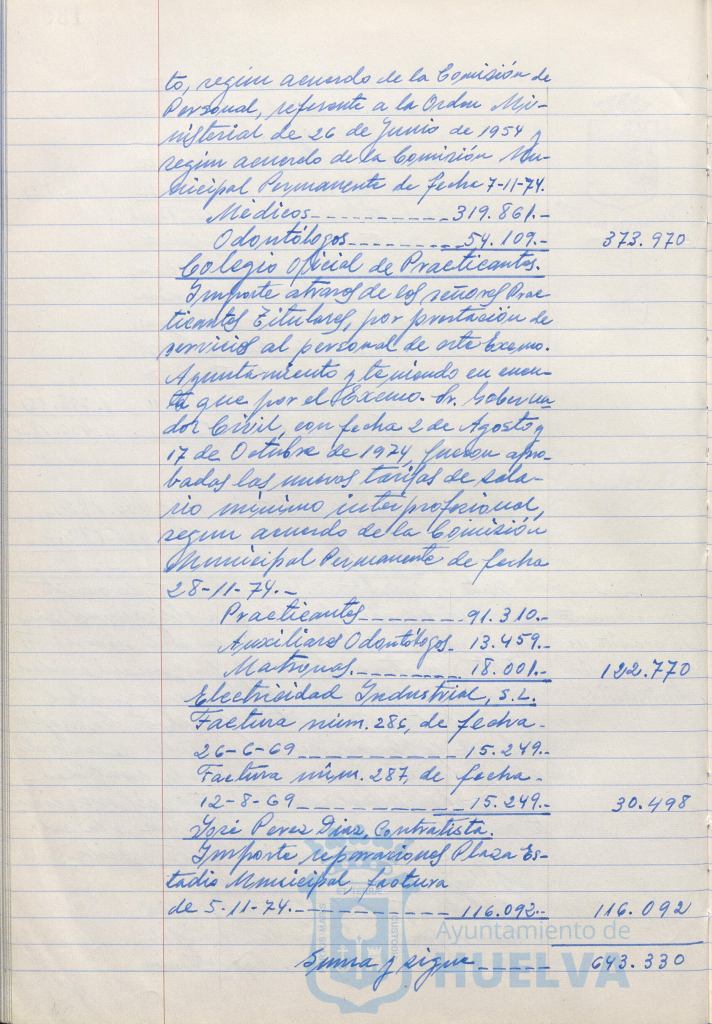 to, según acuerdo de la Comisión de
Personal, referente a la Orden Mi-
nisterial de 26 de Junio de 1954 y
según acuerdo de la Comisión Mu-
nicipal Permanente de fecha 7-11-74.
Médicos 319.861.-
Odontólogos 54.109.- 373.970
Colegio Oficial de Practicantes.
Importe atrasos de los señores Prac
ticantes Titulares, por prestación de
servicios al personal de este Excmo.
Ayuntamiento y teniendo en cuen-
ta que por el Excmo. Sr. Goberna-
dor Civil, con fecha 2 de Agosto y
17 de Octubre de 1974, fueron apro-
badas las nuevas tarifas de sala-
rio mínimo interprofesional,
según acuerdo de la Comisión
Municipal Permanente de fecha
28-11-74.-
Practicantes 91.310.-
Auxiliares Odontólogos 13.459.-
Matronas 18.001.- 122.770
Electricidad Industrial, S.L.
Factura núm. 286, de fecha
26-6-69 15.249.-
Factura núm. 287, de fecha
12-8-69 15.249.- 30.498
José Perez Diaz, Contratista.
Importe reparaciones Plaza Es-
tadio Municipal factura
de 5-11-74. 116.092.- 116.092
Suma y sigue 643.330
Ayuntamiento de
HUELVA